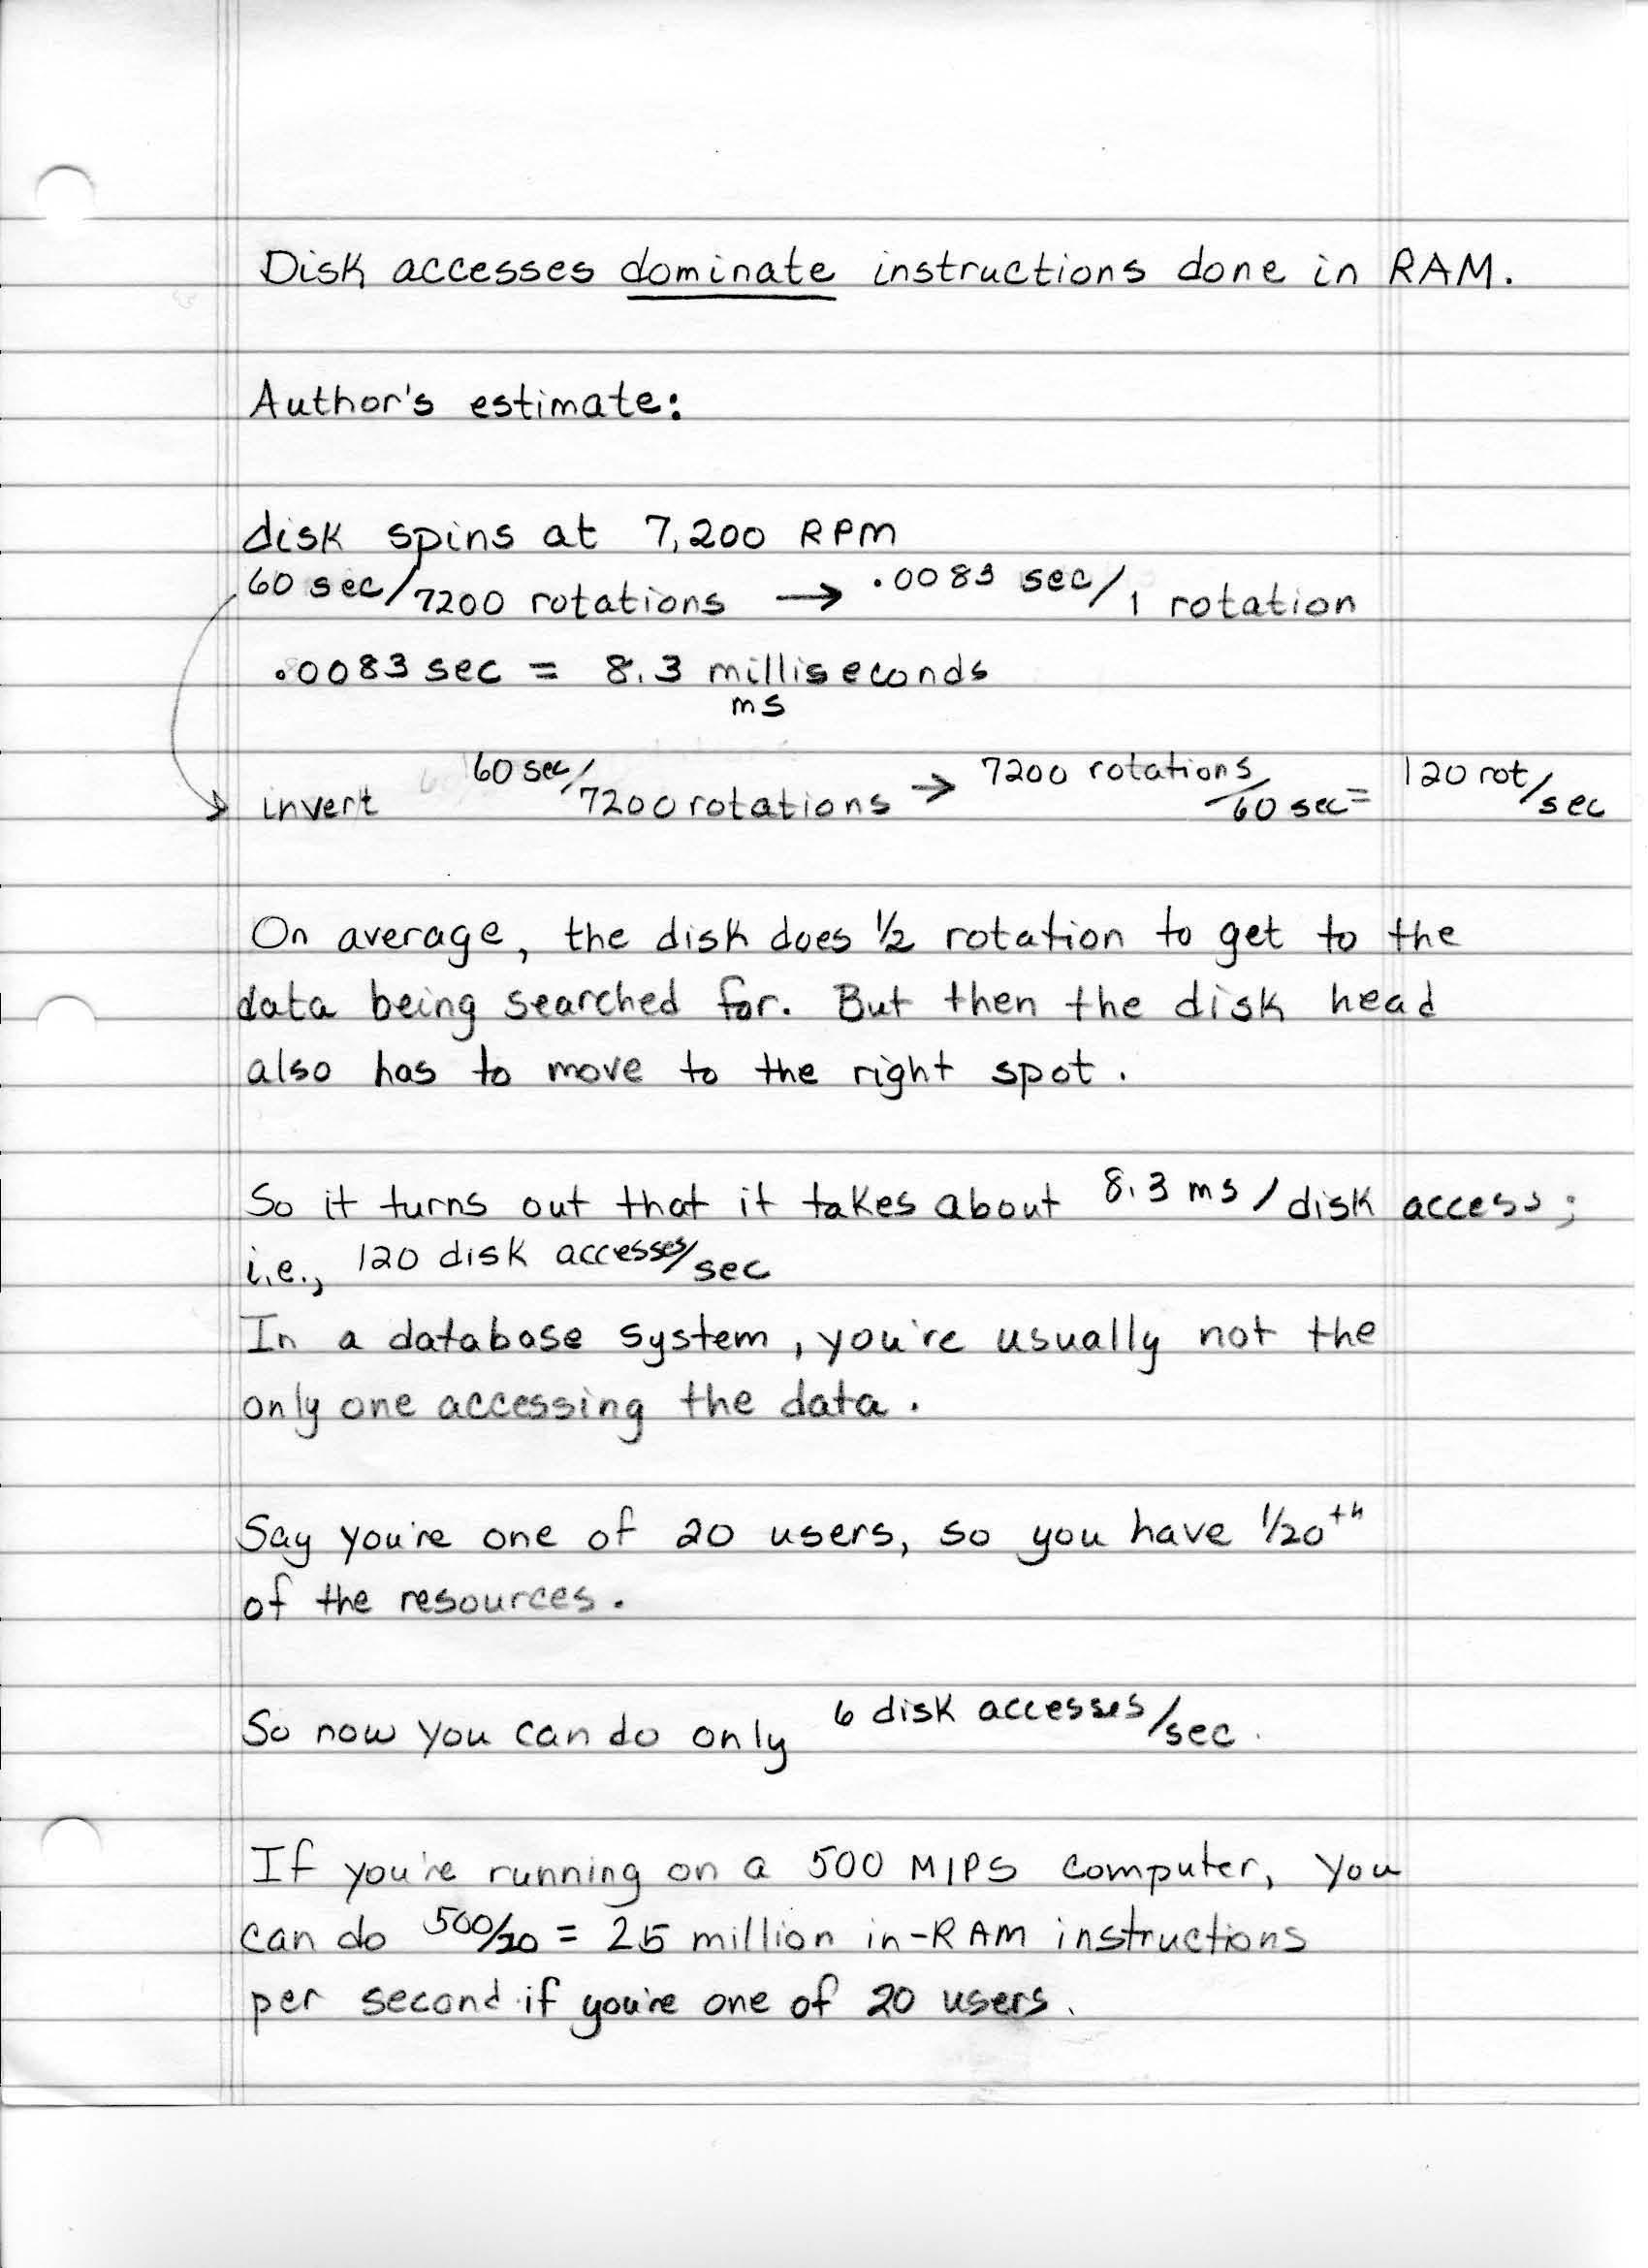 Disk accesses dominate instructions done in RAM.
Author's estimate:
disk spins at 7,200 RPM
60 sec/7200 rotations → .0083 sec/1 rotation
.0083 sec = 8.3 milliseconds
ms
invert 60 sec/7200 rotations → 7200 rotations/60 sec = 120 rot/sec
On average, the disk does 1/2 rotation to get to the
data being searched for. But then the disk head
also has to move to the right spot.
So it turns out that it takes about 8.3 ms/disk access;
i.e., 120 disk accesses/sec
In a database system, you're usually not the
only one accessing the data.
Say you're one of 20 users, so you have 1/20th
of the resources.
So now you can do only 6 disk accesses/sec.
If you're running on a 500 MIPS computer, you
can do 500/20 = 25 million in-RAM instructions
per second if you're one of 20 users.